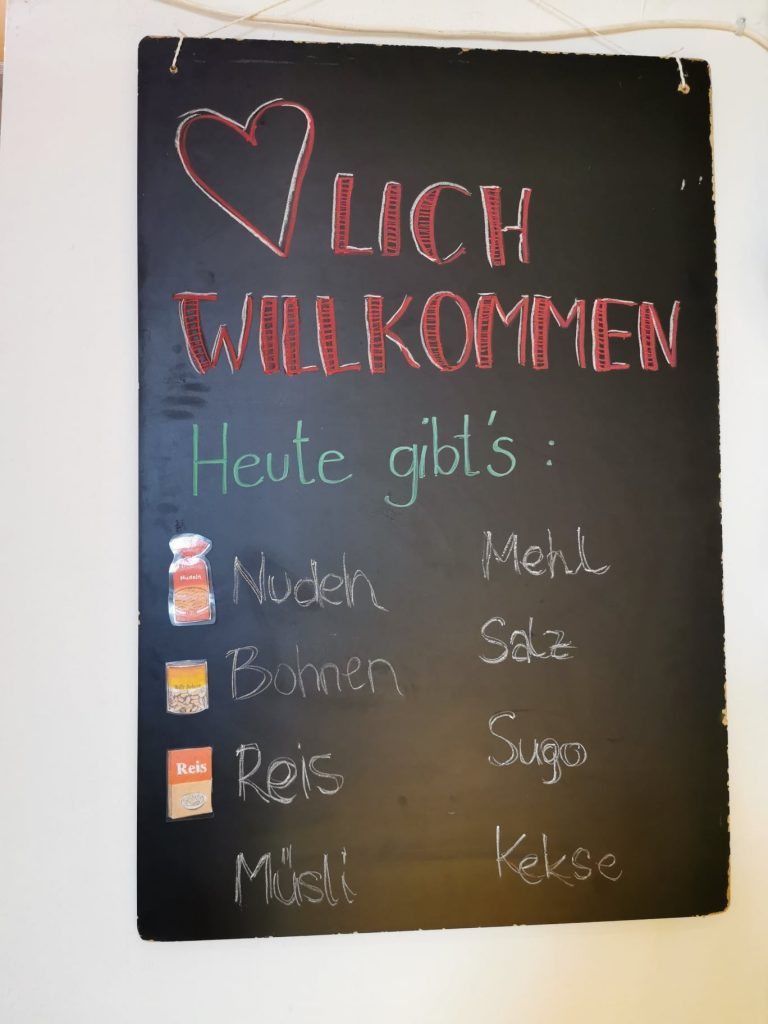 LICH
WILLKOMMEN
Heute gibt's:
Nudeln
Nudeln
Bohnen
Reis
Reis
Müsli
Mehl
Salz
Sugo
Kekse